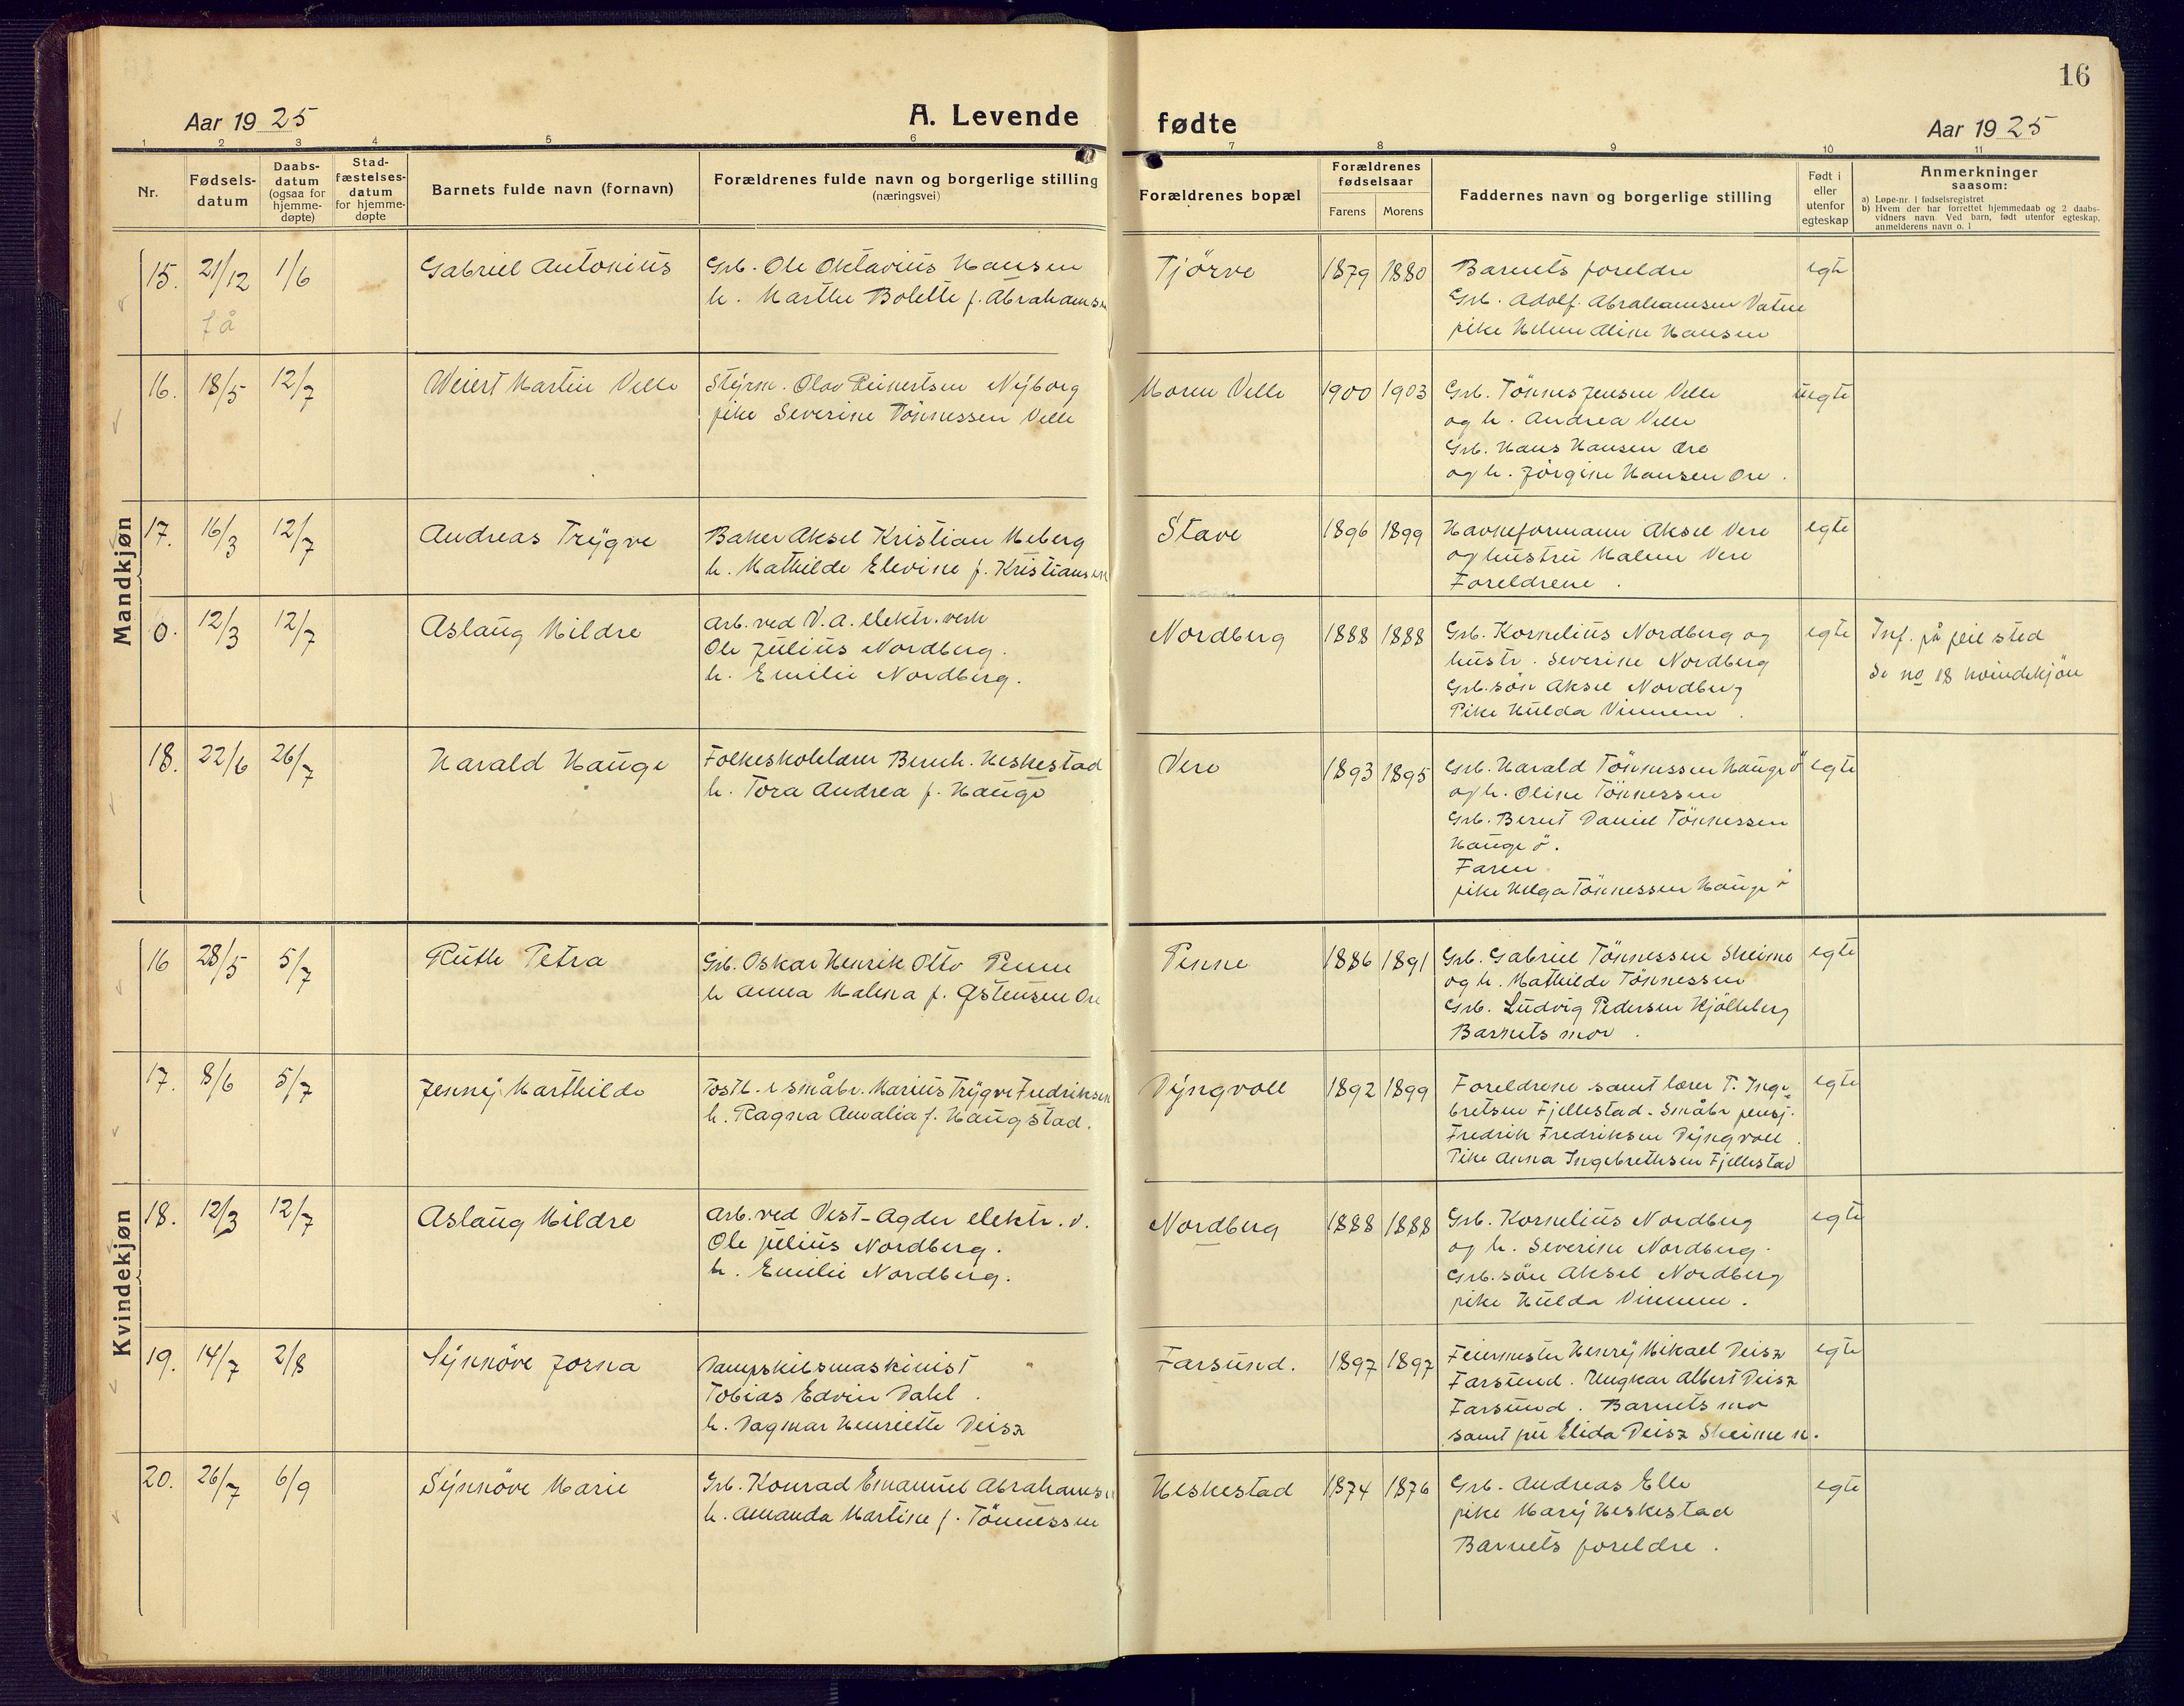 16
Aar 1925
A. Levende
fødte
Aar 1925
1 2 3 4 5 6 7 8 9 10 11
Nr.
Fødsels-
datum
Daabs-
datum
(ogsaa for
hjemme-
døpte)
Stad-
fæstelses-
datum
for hjemme-
døpte
Barnets fulde navn (fornavn)
Forældrenes fulde navn og borgerlige stilling
(næringsvei)
Forældrenes bopæl
Forældrenes
fødselsaar
Farens
Morens
Faddernes navn og borgerlige stilling
Født i
eller
utenfor
egteskap
Anmerkninger
saasom:
a) Løpe-nr. i fødselsregistret
b) Hvem der har forrettet hjemmedaab og 2 daabs-
vidners navn. Ved barn, født utenfor egteskap,
anmelderens navn o. l
Mandkjøn
15. 21/12 1/6 Gabriel Antonius
f å
Grb. Ole Oktavius Hansen
h. Marthe Bolette f. Abrahamsen
Tjörve 1879 1880
Barnets foreldre
Grb. Adolf. Abrahamsen Vatne
pike Helene Aline Hansen
egte
16. 18/5 12/7 Weiert Martin Velle
Styrm. Olav Reinertsen Nyborg
pike Severine Tönnessen Velle
Maren Velle 1900 1903
Grb. Tönnes Jensen Velle
og h. Andrea Velle
Grb. Hans Hansen Ore
og h. Jörgine Hansen Ore.
uegte
17. 16/3 12/7 Andreas Trygve
Baker Aksel Kristian Meberg
h. Mathilde Elevine f. Kristiansen
Stave 1896 1899
Havneformann Aksel Vere
og hustru Malene Vere
Foreldrene.
egte
0. 12/3 12/7 Aslaug Mildre
Arb. ved V.A. elektr. verk
Ole Julius Nordberg.
h. Emilie Nordberg.
Nordberg 1888 1888
Grb. Kornelius Nordberg og
hustr. Severine Nordberg
Grb. sön Aksel Nordberg
Pike Hulda Vinnem.
egte
Inf. på feil sted
Se no 18 kvindekjön
18. 22/6 26/7 Harald Hauge
Folkeskolelærer Bernh. Heskestad
h. Tora Andrea f. Hauge
Vere 1893 1895
Grb. Harald Tönnessen Hauge ö
og h. Oline Tönnessen
Grb. Bernt Daniel Tönnessen
Hauge ö.
Faren
pike Helga Tönnessen Hauge ö
egte
Kvindekjøn
16 28/5 5/7 Ruth Petra
Grb. Oskar Henrik Otto Penne
h Anna Malena f. Østensen Ore
Penne 1886 1891
Grb. Gabriel Tönnessen Skeime
og h. Mathilde Tönnessen
Grb. Ludvig Pedersen Kjölleberg
Barnets mor.
egte
17. 8/6 5/7 Jenny Marthilde
Postb. & småbr. Marius Trygve Fredriksen
h. Ragna Amalia f. Haugstad.
Dyngvoll 1892 1899
Foreldrene samt lærer T. Inge-
bretsen Fjellestad. Småbr pensj.
Fredrik Fredriksen Dyngvoll.
Pike Anna Ingebrethsen Fjellestad
egte
18. 12/3 12/7 Aslaug Mildre
Arb. ved Vest-Agder elektr. v.
Ole Julius Nordberg.
h. Emilie Nordberg.
Nordberg 1888 1888
Grb. Kornelius Nordberg
og h. Severine Nordberg.
Grb. sön Aksel Nordberg
pike Hulda Vinnem.
egte
19. 14/7 2/8 Synnöve Jorna
Dampskibsmaskinist
Tobias Edvin Dahl.
h. Dagmar Henriette Deisz
Farsund. 1897 1897
Feiermester Henry Mikael Deisz
Farsund. Ungkar Albert Deisz
Farsund. Barnets mor
samt fru Elida Deisz Skeime n.
egte
20. 26/7 6/9 Synnöve Marie
Grb. Konrad Emanuel Abrahamsen
h. Amanda Martine f. Tönnessen
Heskestad 1874 1876
Grb. Andreas Elle
pike Mary Heskestad
Barnets foreldre.
egte